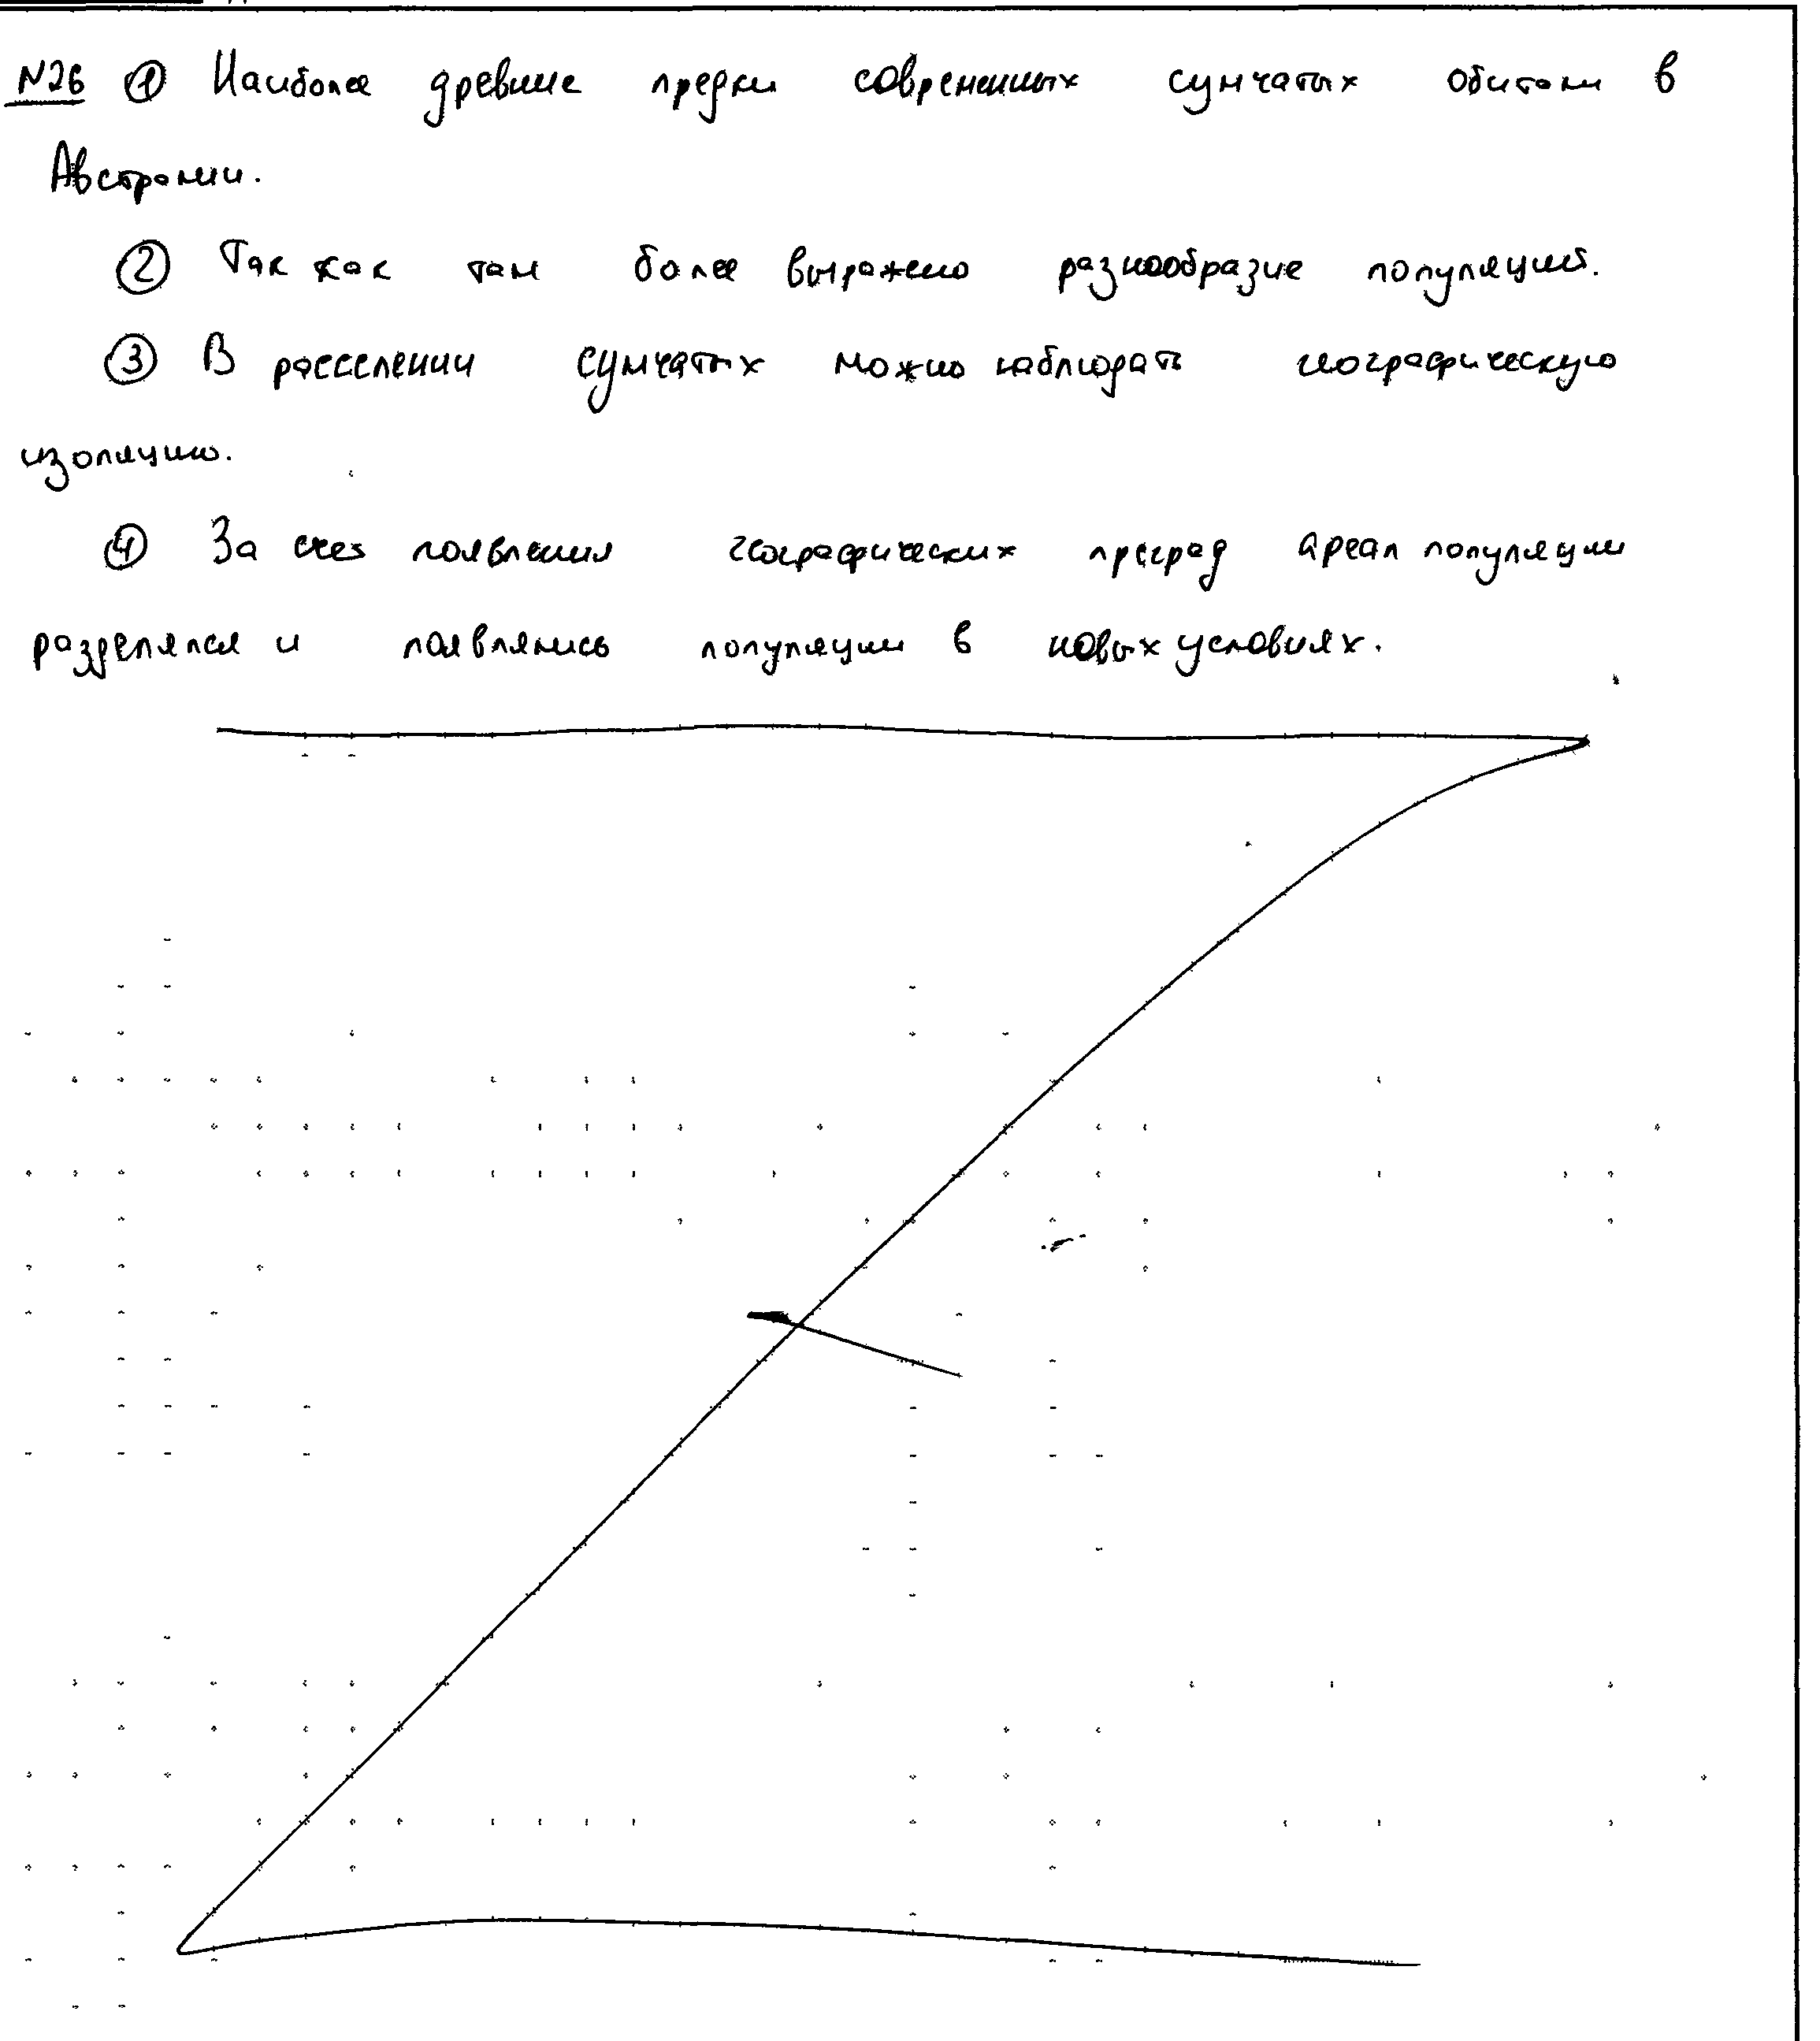 №26 ① Наиболее древние предки современных сумчатых обитали в
Австралии.
② Так как там более выражено разнообразие популяций.
③ В расселении сумчатых можно наблюдать географическую
изоляцию.
④ За счет появления географических преград ареал популяции
разделялся и появлялись популяции в новых условиях.